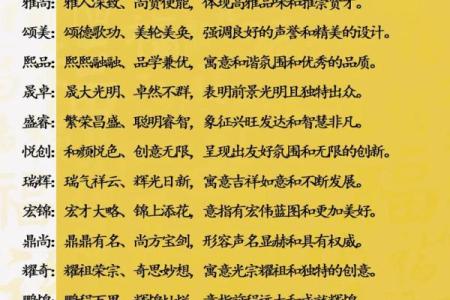 雅尚：雅人深致、尚贤使能，体现高雅品味和推崇贤才。
颂美：颂德歌功、美轮美奂，强调良好的声誉和精美的设计。
熙品：熙熙融融、品学兼优，寓意和谐氛围和优秀的品质。
晟卓：晟大光明、卓然不群，表明前景光明且独特出众。
盛睿：繁荣昌盛、聪明睿智，象征兴旺发达和智慧非凡。
悦创：和颜悦色、创意无限，呈现出友好氛围和无限的创新。
瑞辉：瑞气祥云、辉光日新，寓意吉祥如意和不断发展。
宏锦：宏才大略、锦上添花，意指有宏伟蓝图和更加美好。
鼎尚：鼎鼎有名、尚方宝剑，形容声名显赫和具有权威。
耀奇：耀祖荣宗、奇思妙想，寓意光宗耀祖和独特的创意。